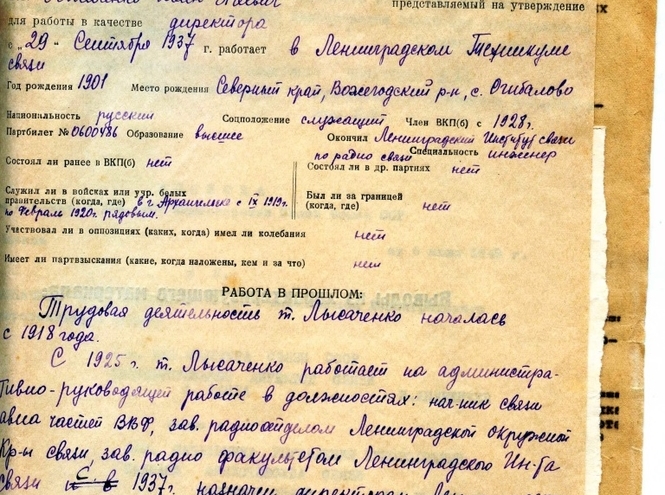 представляемый на утверждение
для работы в качестве директора
с „29“ Сентября 1937 г. работает в Ленинградском Техникуме
связи
Год рождения 1901 Место рождения Северный край, Вожегодский р-н, с. Огибалово
Национальность русский Соцположение служащий Член ВКП(б) с 1928 г.
Партбилет № 0600486 Образование высшее Окончил Ленинградский Институт связи
по радио связи Специальность инженер
Состоял ли ранее в ВКП(б) нет Состоял ли в др. партиях нет
Служил ли в войсках или учр. белых
правительств (когда, где) в г. Архангельске с IX 1919 г.
по Февраль 1920 г. рядовым. Был ли за границей
(когда, где) нет
Участвовал ли в оппозициях (каких, когда) имел ли колебания нет
Имеет ли партвзыскания (какие, когда наложены, кем и за что) нет
РАБОТА В ПРОШЛОМ:
Трудовая деятельность т. Лысаченко началась
с 1918 года.
С 1925 г. т. Лысаченко работает на администра-
тивно-руководящей работе в должностях: нач-ник связи
авиа частей ВКФ, зав. радиоотделом Ленинградской Окружной
Кр-ы связи, зав. радио факультетом Ленинградского Ин-та
связи С в 1937 г. назначен директором